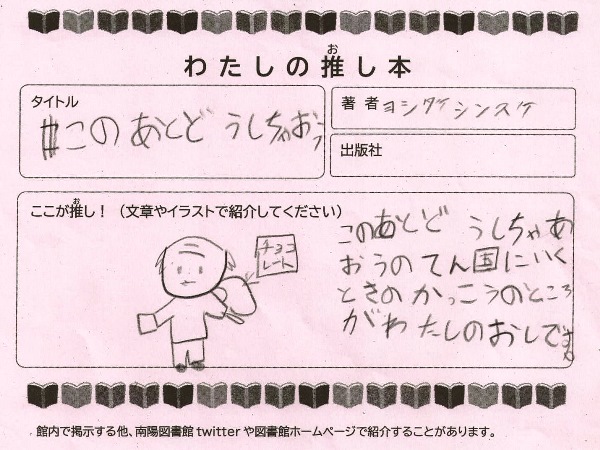 わたしの推し本
お
タイトル
#このあとどうしちゃおう
著者 ヨシタケシンスケ
出版社
ここが推し！（文章やイラストで紹介してください）
お
チョコ
レート
このあとどうしちゃあ
おうのてん国にいく
ときのかっこうのところ
がわたしのおしです。
館内で掲示する他、南陽図書館twitterや図書館ホームページで紹介することがあります。